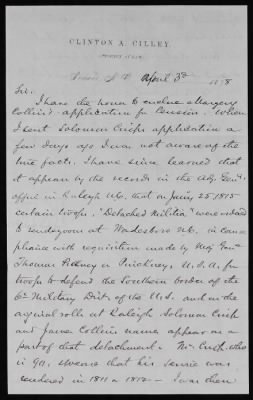 CLINTON A. CILLEY,
April 3d 1878
Sir:
I have the honor to enclose Margery
Collins application for Pension. When
I sent Solomon Crisp's application a
few days ago I was not aware of the
true facts. I have since learned that
it appears by the records in the Adj. Genl.
office in Raleigh N.C. that on Jany 25 1815
certain troops, "Detached Militia" were ordered
to rendezvous at Wadesboro N.C. in com-
pliance with requisition made by Maj. Genl
Thomas Pinckney, U.S.A. for
troops to defend the Southern border of the
6th Military Dist. of the U.S. and on the
original rolls at Raleigh Solomon Crisp
and James Collins names appear as a
part of that detachment. Mr. Crisp, who
is 90, swears that his service was
rendered in 1811 or 1812 - I was then